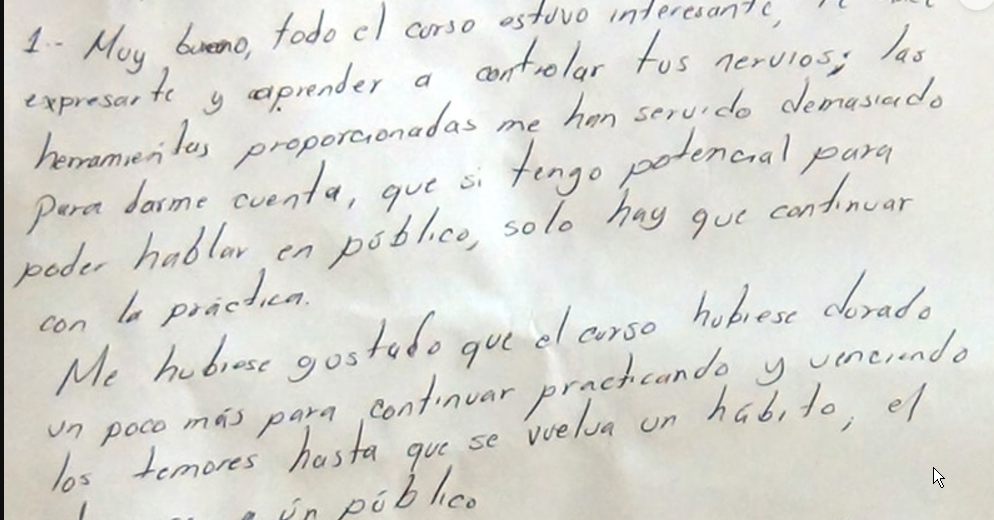 1.- Muy bueno, todo el curso estuvo interesante,
expresarte y aprender a controlar tus nervios; las
herramientas proporcionadas me han servido demasiado
para darme cuenta, que si tengo potencial para
poder hablar en público, solo hay que continuar
con la práctica.
Me hubiese gustado que el curso hubiese durado
un poco más para continuar practicando y venciendo
los temores hasta que se vuelva un hábito, el
ún público